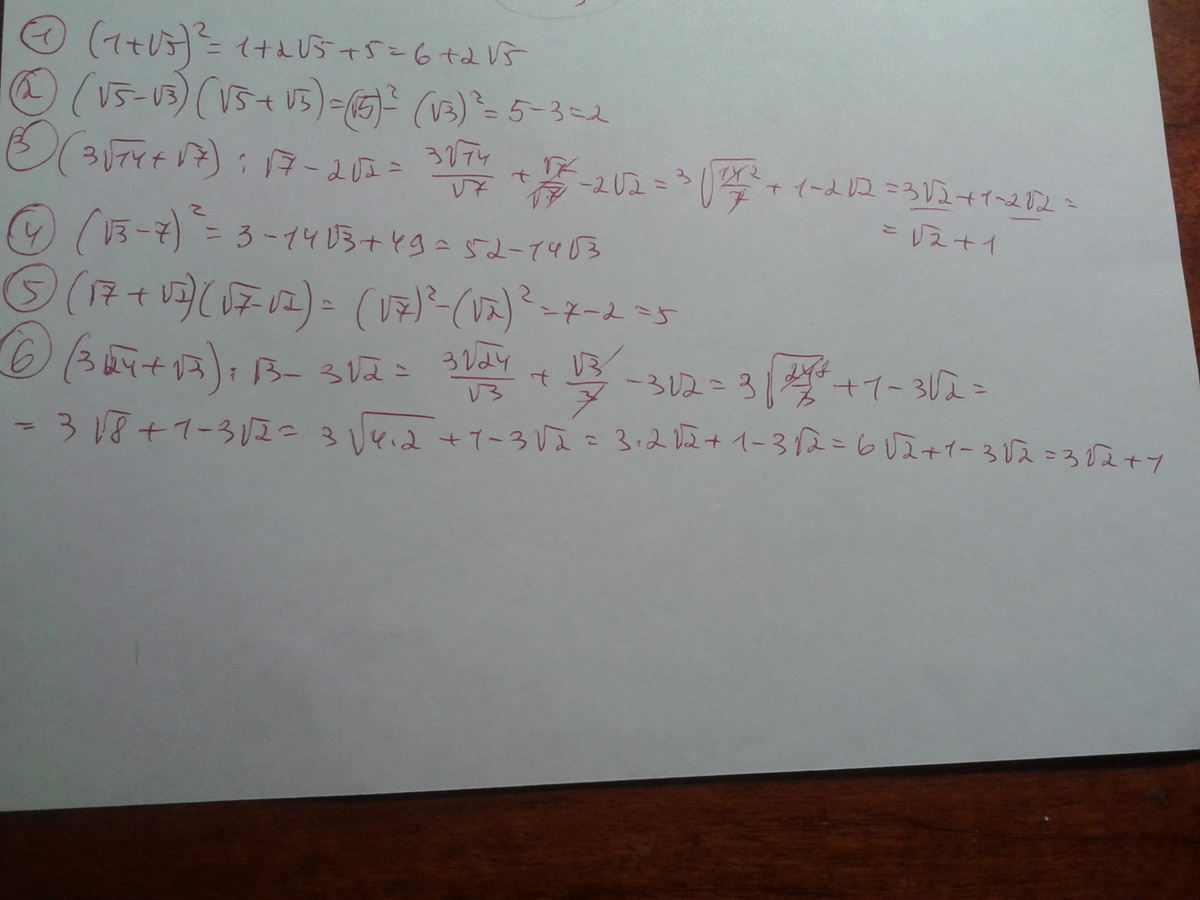 ① (1+√5)² = 1+2√5+5 = 6+2√5
② (√5-√3)(√5+√3) = (√5)² - (√3)² = 5-3=2
③ (3√14+√7) : √7 - 2√2 = 3√14/√7 + √7/√7 - 2√2 = 3√(14/7) 2 + 1-2√2 = 3√2+1-2√2 =
= √2+1
④ (√3-7)² = 3-14√3+49 = 52-14√3
⑤ (√7+√2)(√7-√2) = (√7)² - (√2)² = 7-2=5
⑥ (3√24+√3) : √3 - 3√2 = 3√24/√3 + √3/3 - 3√2 = 3√(24/3) 8 + 1-3√2 =
= 3√8+1-3√2 = 3√4·2 + 1-3√2 = 3·2√2+1-3√2 = 6√2+1-3√2 = 3√2+1